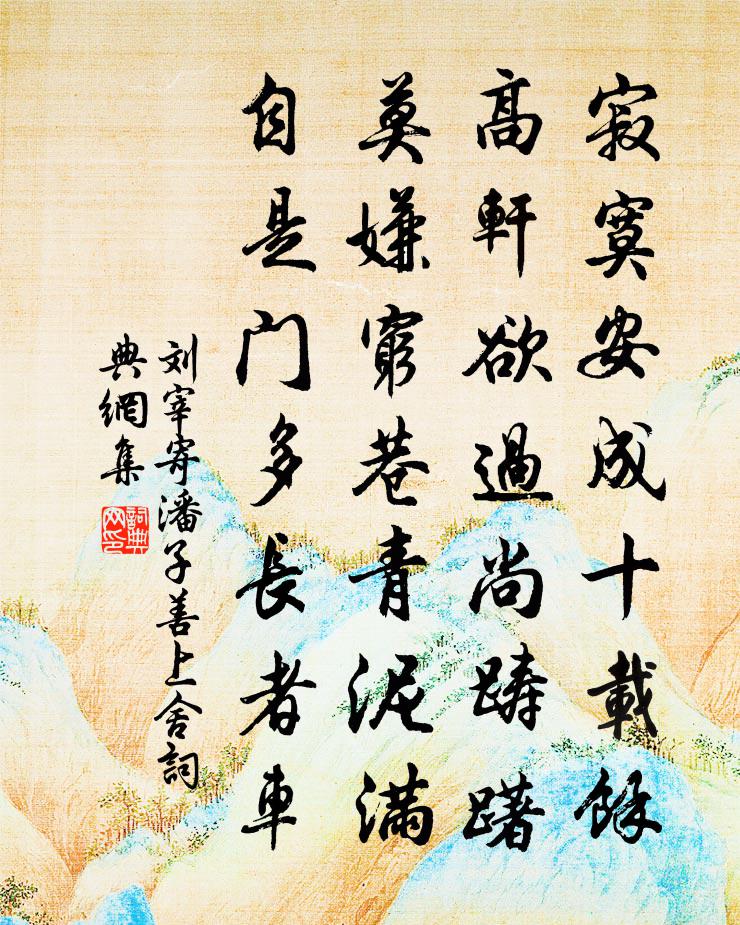 寂寞安成十載餘
高軒欲過尚躊躇
莫嫌窮巷青泥滿
自是門多長者車
刘宰寄潘子善上舍詞
典網集
詞典网印